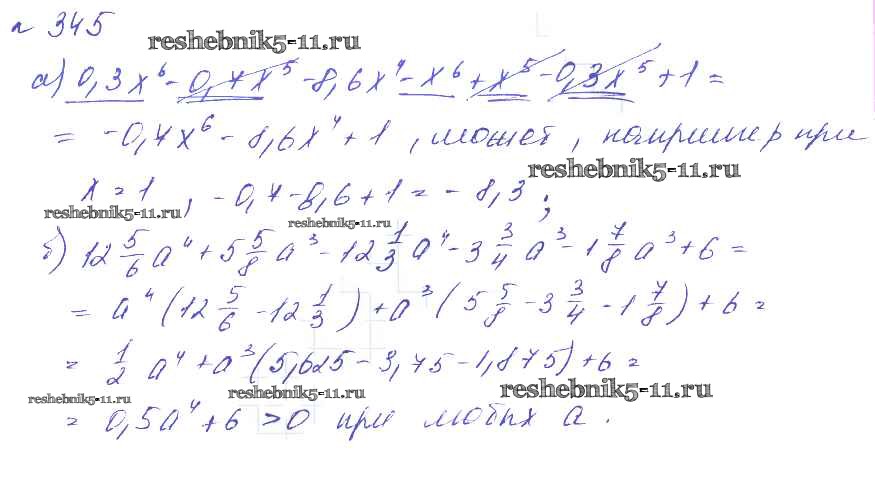 № 345
reshebnik5-11.ru
а) 0,3x⁶ - 0,7x⁵ - 8,6x⁴ - x⁶ + x⁵ - 0,3x⁵ + 1 =
= -0,7x⁶ - 8,6x⁴ + 1, может, например при
reshebnik5-11.ru
x = 1, -0,7 - 8,6 + 1 = -8,3;
reshebnik5-11.ru reshebnik5-11.ru
б) 12 5/6 a⁴ + 5 5/8 a³ - 12 1/3 a⁴ - 3 3/4 a³ - 1 7/8 a³ + 6 =
= a⁴(12 5/6 - 12 1/3) + a³(5 5/8 - 3 3/4 - 1 7/8) + 6 =
= 1/2 a⁴ + a³(5,625 - 3,75 - 1,875) + 6 =
reshebnik5-11.ru reshebnik5-11.ru reshebnik5-11.ru
= 0,5a⁴ + 6 > 0 при любых a.